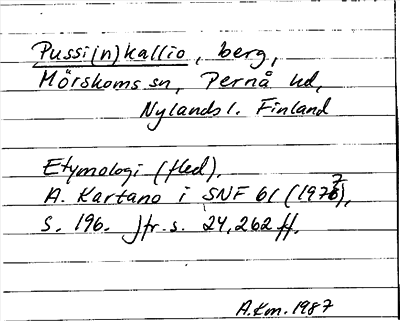 Pussi(n)kallio, berg,
Mörskoms sn, Pernå hd,
Nylands l. Finland
Etymologi (fled).
A. Kartano i SNF 61 (1977),
s. 196. Jfr. s. 24, 262 ff.
A.Km. 1987